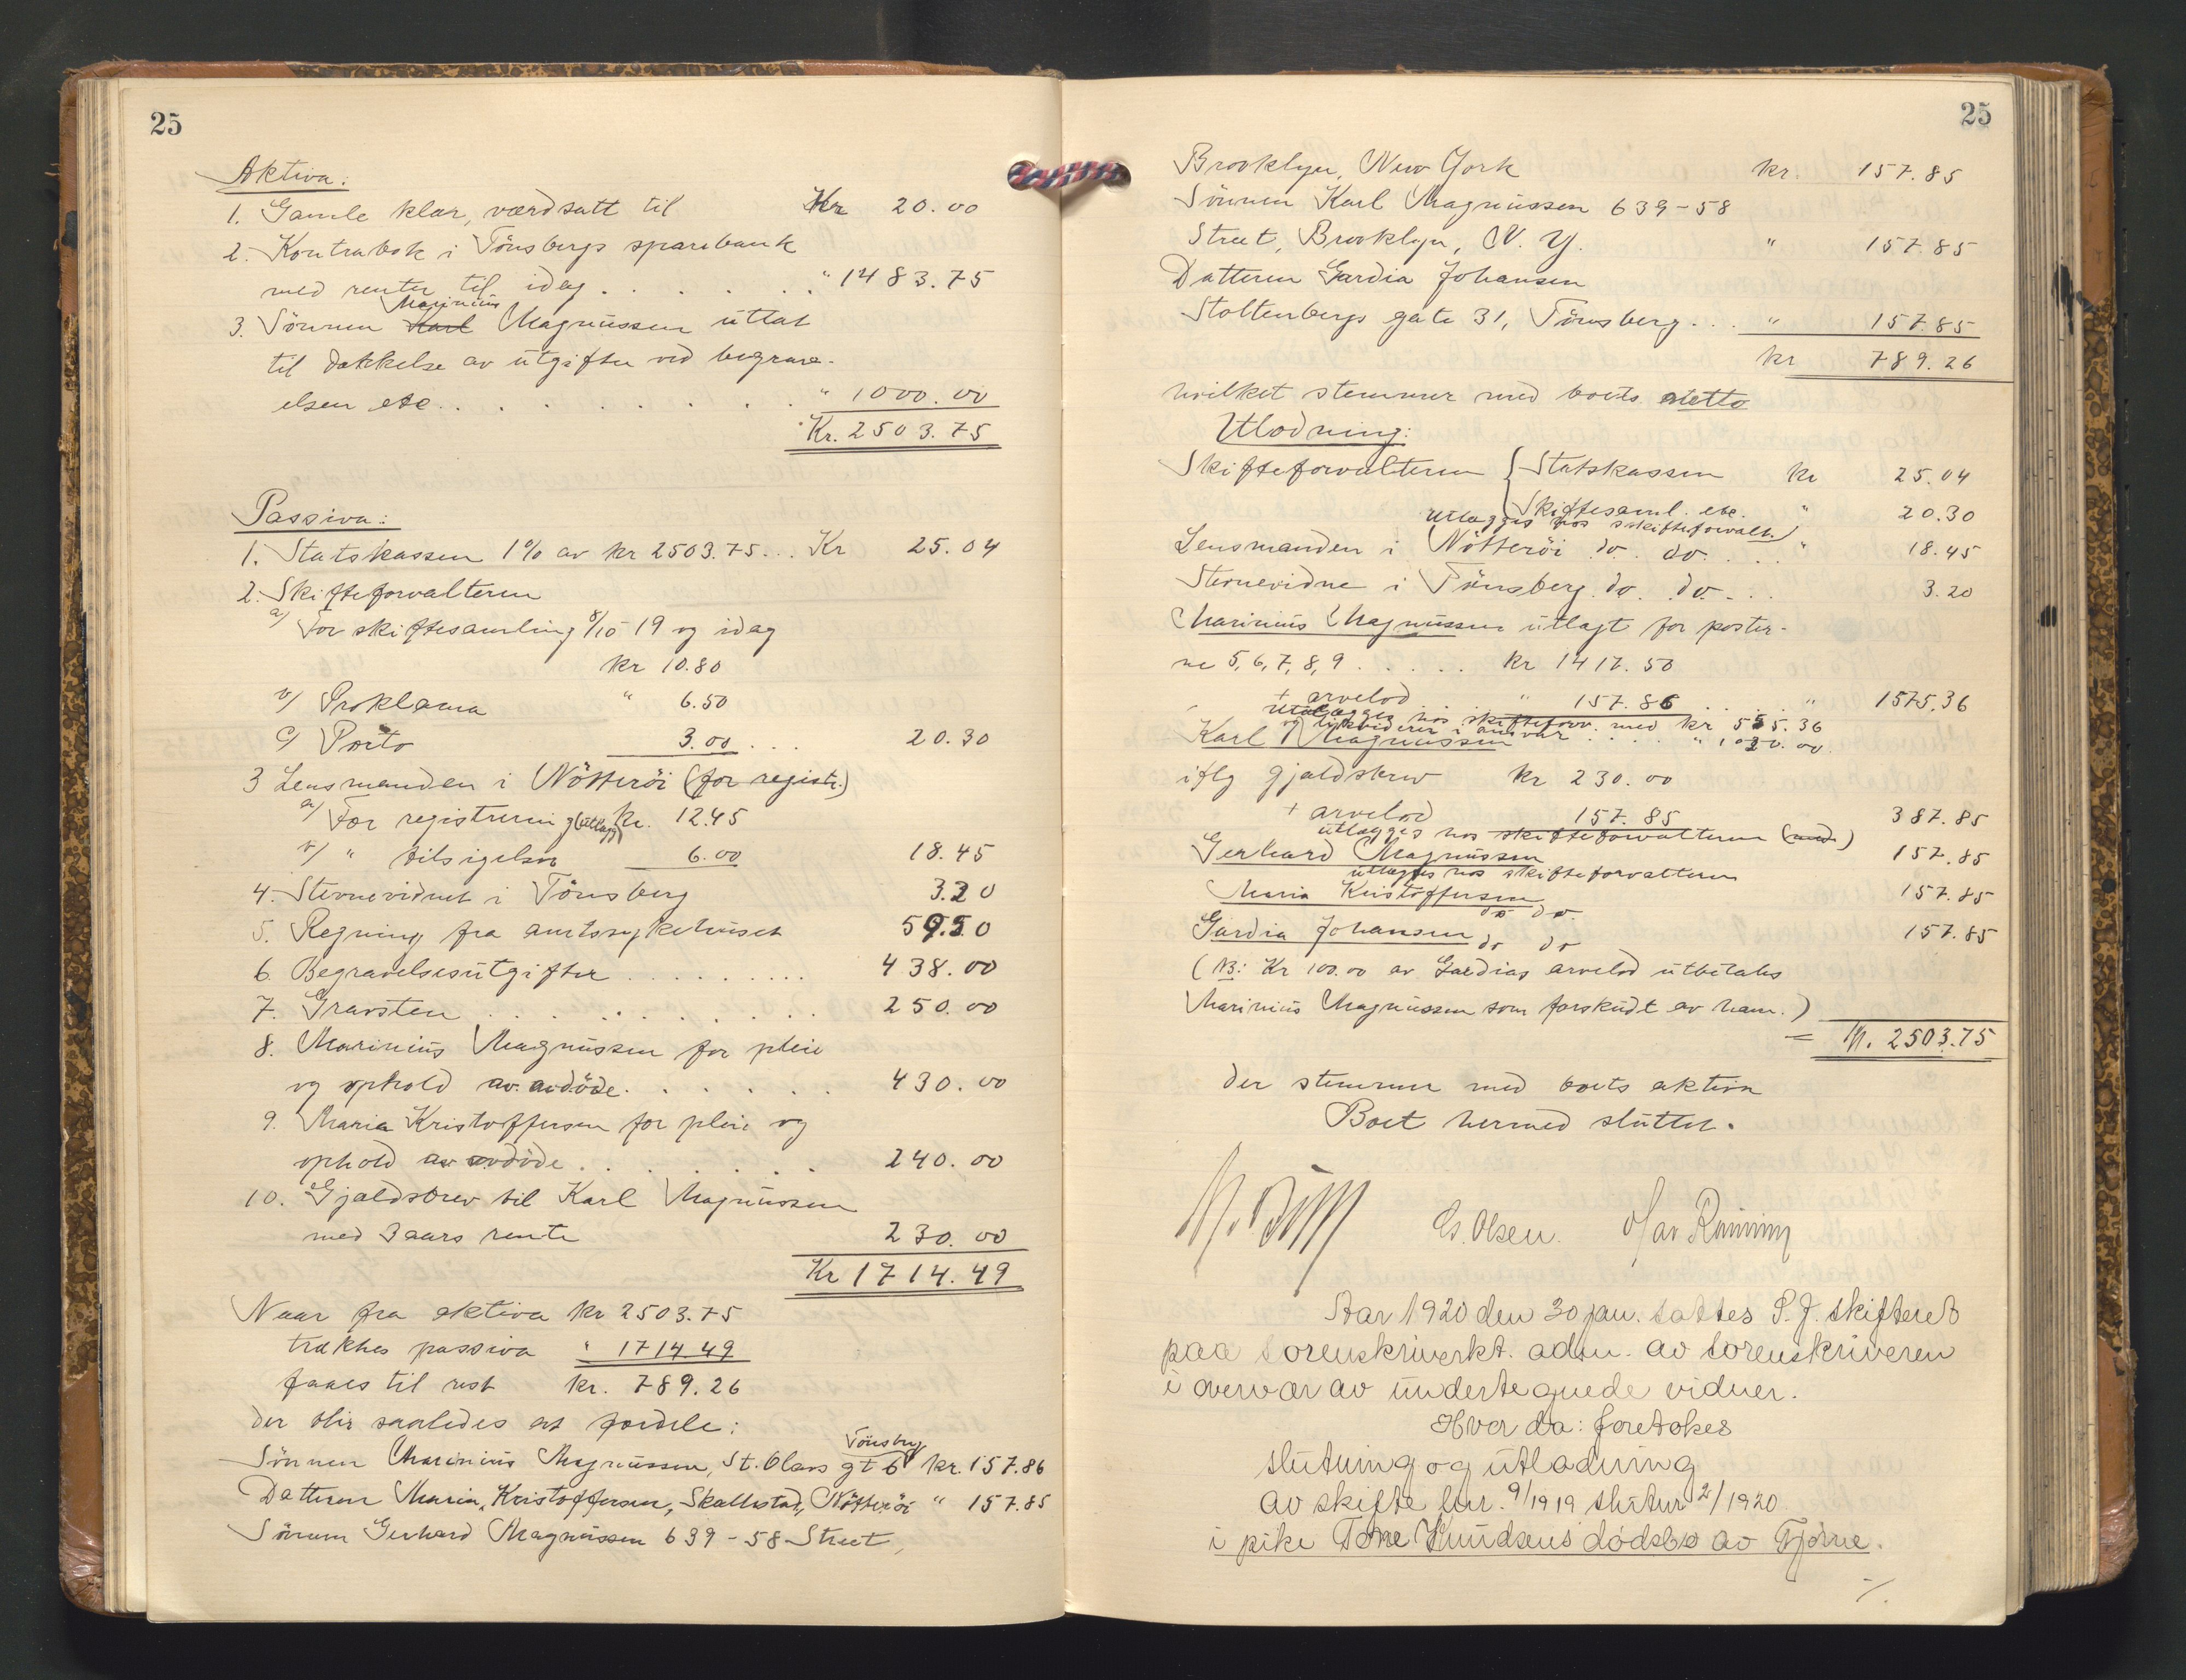 25
Aktiva:
1. Gamle klær, værdsatt til Kr 20.00
2. Kontrabok i Tönsbergs sparebank
med renter til idag . . . . . " 1483.75
Marinius
3. Sönnen Karl Magnussen uttat
til dækkelse av utgifter ved begrav-
elsen etc. . . . . . . . " 1000.00
Kr. 2503.75
Passiva:
1. Statskassen 1% av kr 2503.75 ... Kr 25.04
2. Skifteforvalteren
a/ For skiftesamling 8/10 19 og idag
kr 10.80
b/ Proklama " 6.50
c/ Porto 3.00 . . . 20.30
3 Lensmanden i Nötteröi (for registr.)
a/ For registrering (utlagt) kr. 12.45
b/ " tilsigelse 6.00 18.45
4. Stevnevidnet i Tönsberg 3.20
5. Regning fra amtssykehuset 59.50
6. Begravelsesutgifter . . . . . . . . 438.00
7. Gravsten . . . . . . . . . . 250.00
8. Marinius Magnussen for pleie
og ophold av avdöde . . . . . . 430.00
9. Maria Kristoffersen for pleie og
ophold av avdöde . . . . . . . 240.00
10. Gjældsbrev til Karl Magnussen
med 3 aars rente 230.00
Kr 1714.49
Naar fra aktiva kr 2503.75
trækkes passiva " 1714.49
faaes til rest kr. 789.26
der blir saaledes at fordele:
Tönsberg
Sönnen Marinius Magnussen, St. Olavs gt 6 kr. 157.86
Datteren Maria Kristoffersen, Skallestad, Nötteröi " 157.85
Sönnen Gerhard Magnussen 639-58 Street,
25
Brooklyn, New York kr. 157.85
Sönnen Karl Magnussen 639-58
Street, Brooklyn, N. Y. " 157.85
Datteren Gardia Johansen
Stoltenbergs gate 31, Tönsberg . . . " 157.85
kr 789.26
hvilket stemmer med boets netto
Utlodning:
Skifteforvalteren { Statskassen kr 25.04
Skiftesaml. etc. " 20.30
utlægges hos skifteforvalt.
Lensmanden i Nötteröi do. do. . . . " 18.45
Stevnevidne i Tönsberg. do. do. . . . 3.20
Marinius Magnussen utlagt for poster-
ne 5, 6, 7, 8, 9 . . . . . kr 1417.50
+ arvelod " 157.86 . . . . " 1575.36
utlægges hos skifteforv. med kr 555.36
og likviderer i ansvar . . . . " 1020.00
Karl Magnussen
iflg gjældsbrev kr 230.00
+ arvelod 157.85 387.85
utlægges hos skifteforvalteren (med)
Gerhard Magnussen 157.85
utlægges hos skifteforvalteren
Maria Kristoffersen 157.85
do do.
Gardia Johansen do do 157.85
(NB: Kr 100.00 av Gardias arvelod utbetales
Marinius Magnussen som forskudt av ham.)
= Kr. 2503.75
der stemmer med boets aktiva
Boet hermed sluttet.
G. Olsen. Olav Rönning
Aar 1920 den 30 jan. sattes P. J. skifteret
paa sorenskriverkt. adm. av sorenskriveren
i overvær av undertegnede vidner.
Hvor da: foretokes
slutning og utlodning
av skifte lnr. 9/1919 slutnr 2/1920
i pike Tone Knudsens dödsbo av Tjöme.
./.